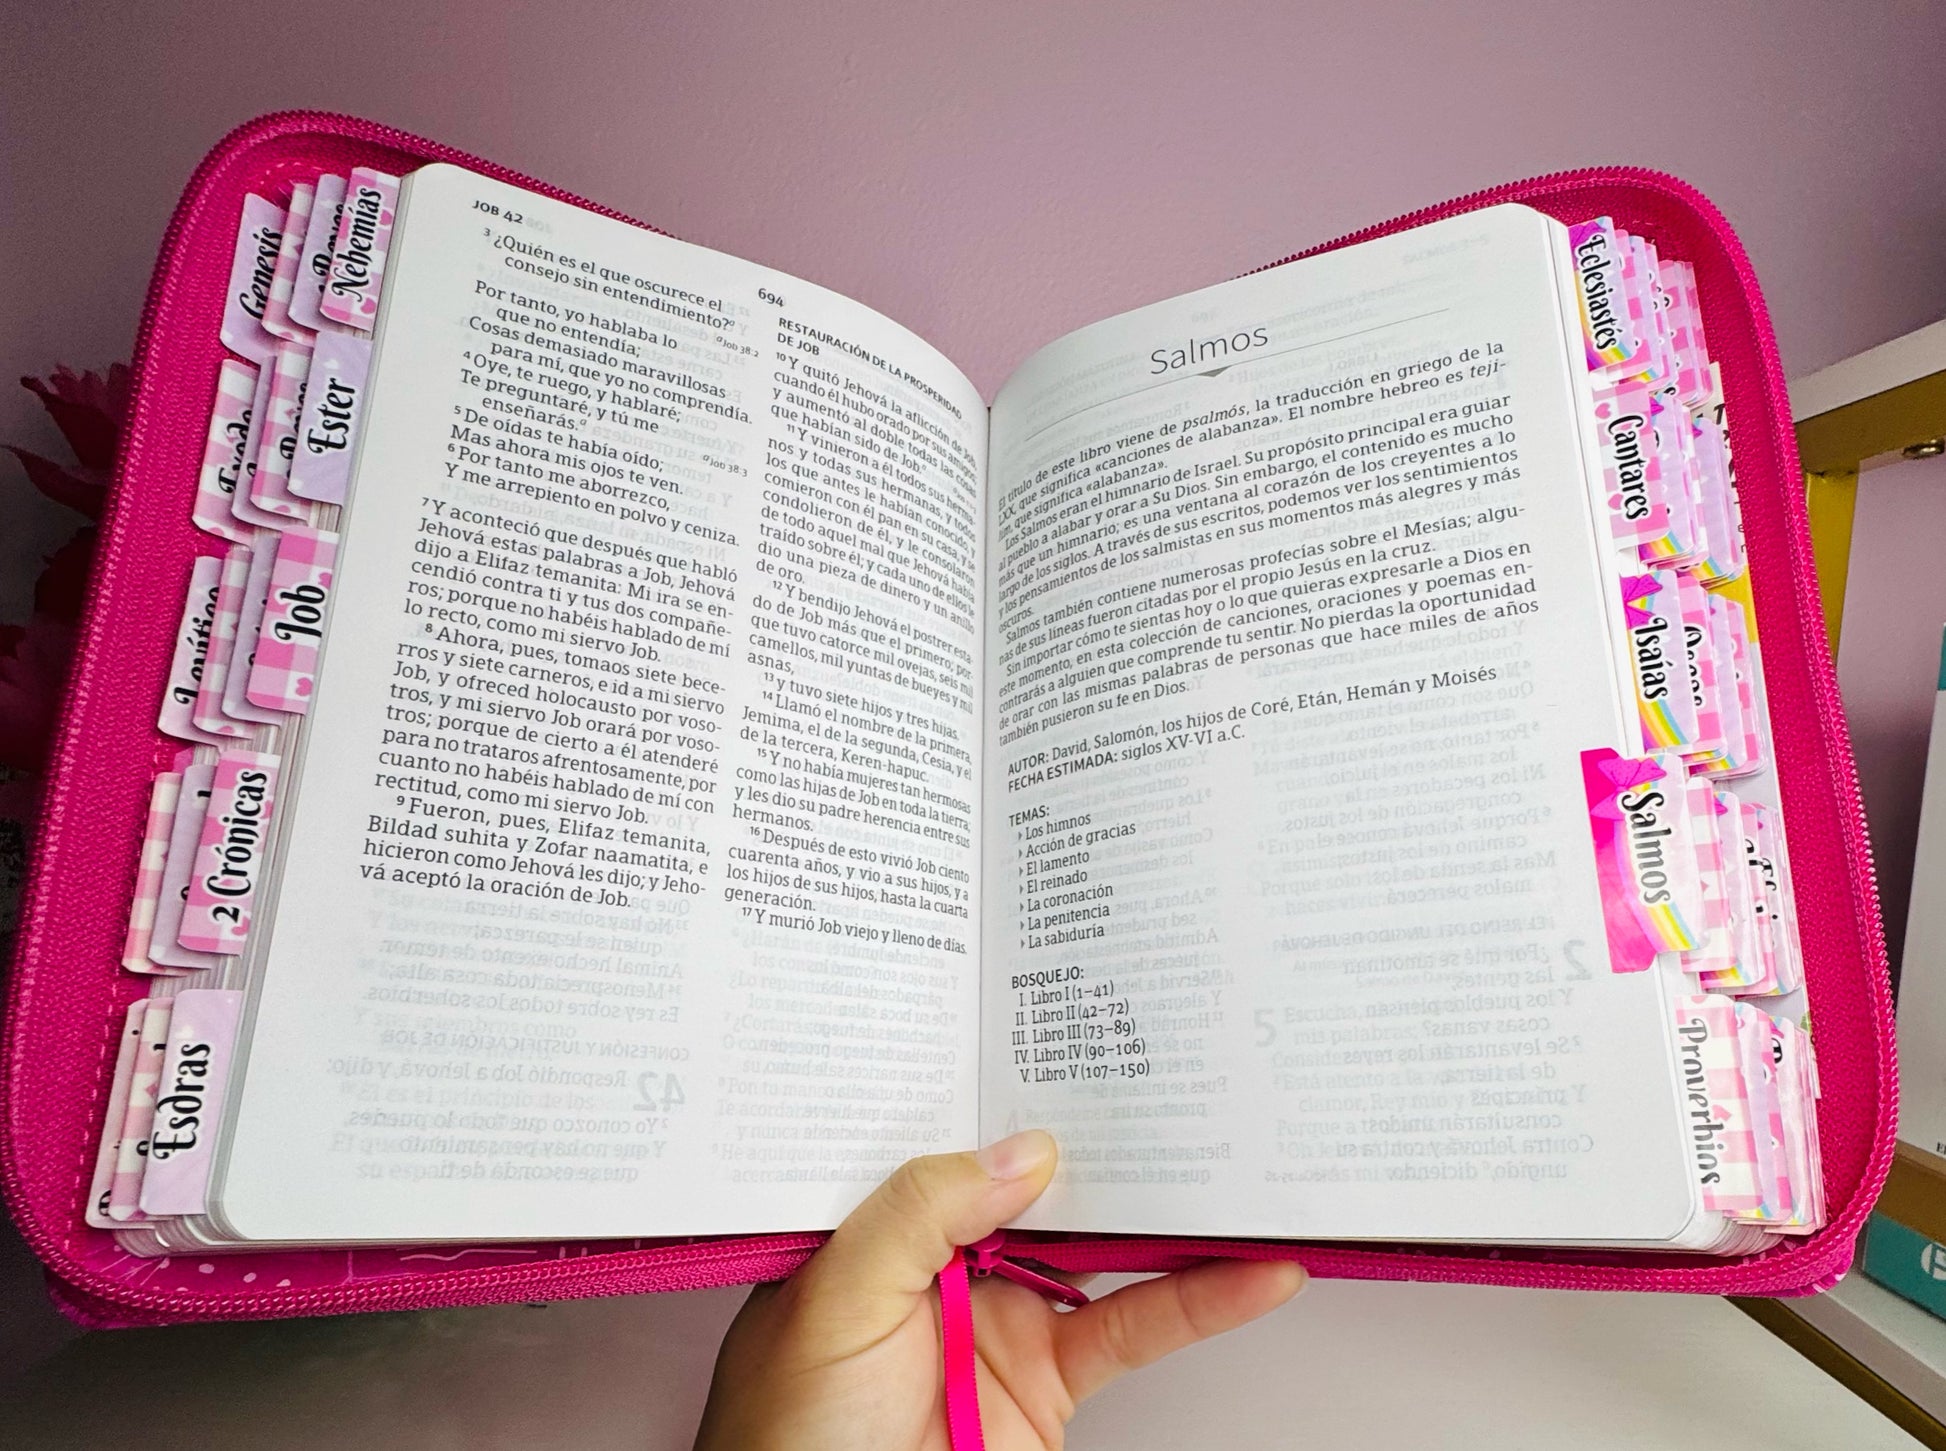 Génesis
Nehemías
Éxodo
Ester
Levítico
Job
2 Crónicas
Esdras
JOB 42
694
3 ¿Quién es el que oscurece el
consejo sin entendimiento?a
Por tanto, yo hablaba lo
que no entendía;
a Job 38:2
Cosas demasiado maravillosas
para mí, que yo no comprendía.
4 Oye, te ruego, y hablaré;
Te preguntaré, y tú me
enseñarás.a
a Job 38:3
5 De oídas te había oído;
Mas ahora mis ojos te ven.
6 Por tanto me aborrezco,
Y me arrepiento en polvo y ceniza.
7 Y aconteció que después que habló
Jehová estas palabras a Job, Jehová
dijo a Elifaz temanita: Mi ira se en-
cendió contra ti y tus dos compañe-
ros; porque no habéis hablado de mí
lo recto, como mi siervo Job.
8 Ahora, pues, tomaos siete bece-
rros y siete carneros, e id a mi siervo
Job, y ofreced holocausto por voso-
tros, y mi siervo Job orará por voso-
tros; porque de cierto a él atenderé
para no trataros afrentosamente, por
cuanto no habéis hablado de mí con
rectitud, como mi siervo Job.
9 Fueron, pues, Elifaz temanita,
Bildad suhita y Zofar naamatita, e
hicieron como Jehová les dijo; y Jeho-
vá aceptó la oración de Job.
RESTAURACIÓN DE LA PROSPERIDAD
DE JOB
10 Y quitó Jehová la aflicción de Job,
cuando él hubo orado por sus amigos;
y aumentó al doble todas las cosas
que habían sido de Job.
11 Y vinieron a él todos sus herma-
nos y todas sus hermanas, y todos
los que antes le habían conocido, y
comieron con él pan en su casa, y se
condolieron de él, y le consolaron
de todo aquel mal que Jehová había
traído sobre él; y cada uno de ellos le
dio una pieza de dinero y un anillo
de oro.
12 Y bendijo Jehová el postrer esta-
do de Job más que el primero; por-
que tuvo catorce mil ovejas, seis mil
camellos, mil yuntas de bueyes y mil
asnas,
13 y tuvo siete hijos y tres hijas.
14 Llamó el nombre de la primera,
Jemima, el de la segunda, Cesia, y el
de la tercera, Keren-hapuc.
15 Y no había mujeres tan hermosas
como las hijas de Job en toda la tierra;
y les dio su padre herencia entre sus
hermanos.
16 Después de esto vivió Job ciento
cuarenta años, y vio a sus hijos, y a
los hijos de sus hijos, hasta la cuarta
generación.
17 Y murió Job viejo y lleno de días.
Salmos
El título de este libro viene de psalmós, la traducción en griego de la
LXX, que significa «canciones de alabanza». El nombre hebreo es teji-
lim, que significa «alabanza».
Los Salmos eran el himnario de Israel. Su propósito principal era guiar
al pueblo a alabar y orar a Su Dios. Sin embargo, el contenido es mucho
más que un himnario; es una ventana al corazón de los creyentes a lo
largo de los siglos. A través de sus escritos, podemos ver los sentimientos
y los pensamientos de los salmistas en sus momentos más alegres y más
oscuros.
Salmos también contiene numerosas profecías sobre el Mesías; algu-
nas de sus líneas fueron citadas por el propio Jesús en la cruz.
Sin importar cómo te sientas hoy o lo que quieras expresarle a Dios en
este momento, en esta colección de canciones, oraciones y poemas en-
contrarás a alguien que comprende tu sentir. No pierdas la oportunidad
de orar con las mismas palabras de personas que hace miles de años
también pusieron su fe en Dios.
AUTOR: David, Salomón, los hijos de Coré, Etán, Hemán y Moisés
FECHA ESTIMADA: siglos XV-VI a.C.
TEMAS:
› Los himnos
› Acción de gracias
› El lamento
› El reinado
› La coronación
› La penitencia
› La sabiduría
BOSQUEJO:
I. Libro I (1–41)
II. Libro II (42–72)
III. Libro III (73–89)
IV. Libro IV (90–106)
V. Libro V (107–150)
Eclesiastés
Cantares
Isaías
Oseas
Salmos
Proverbios